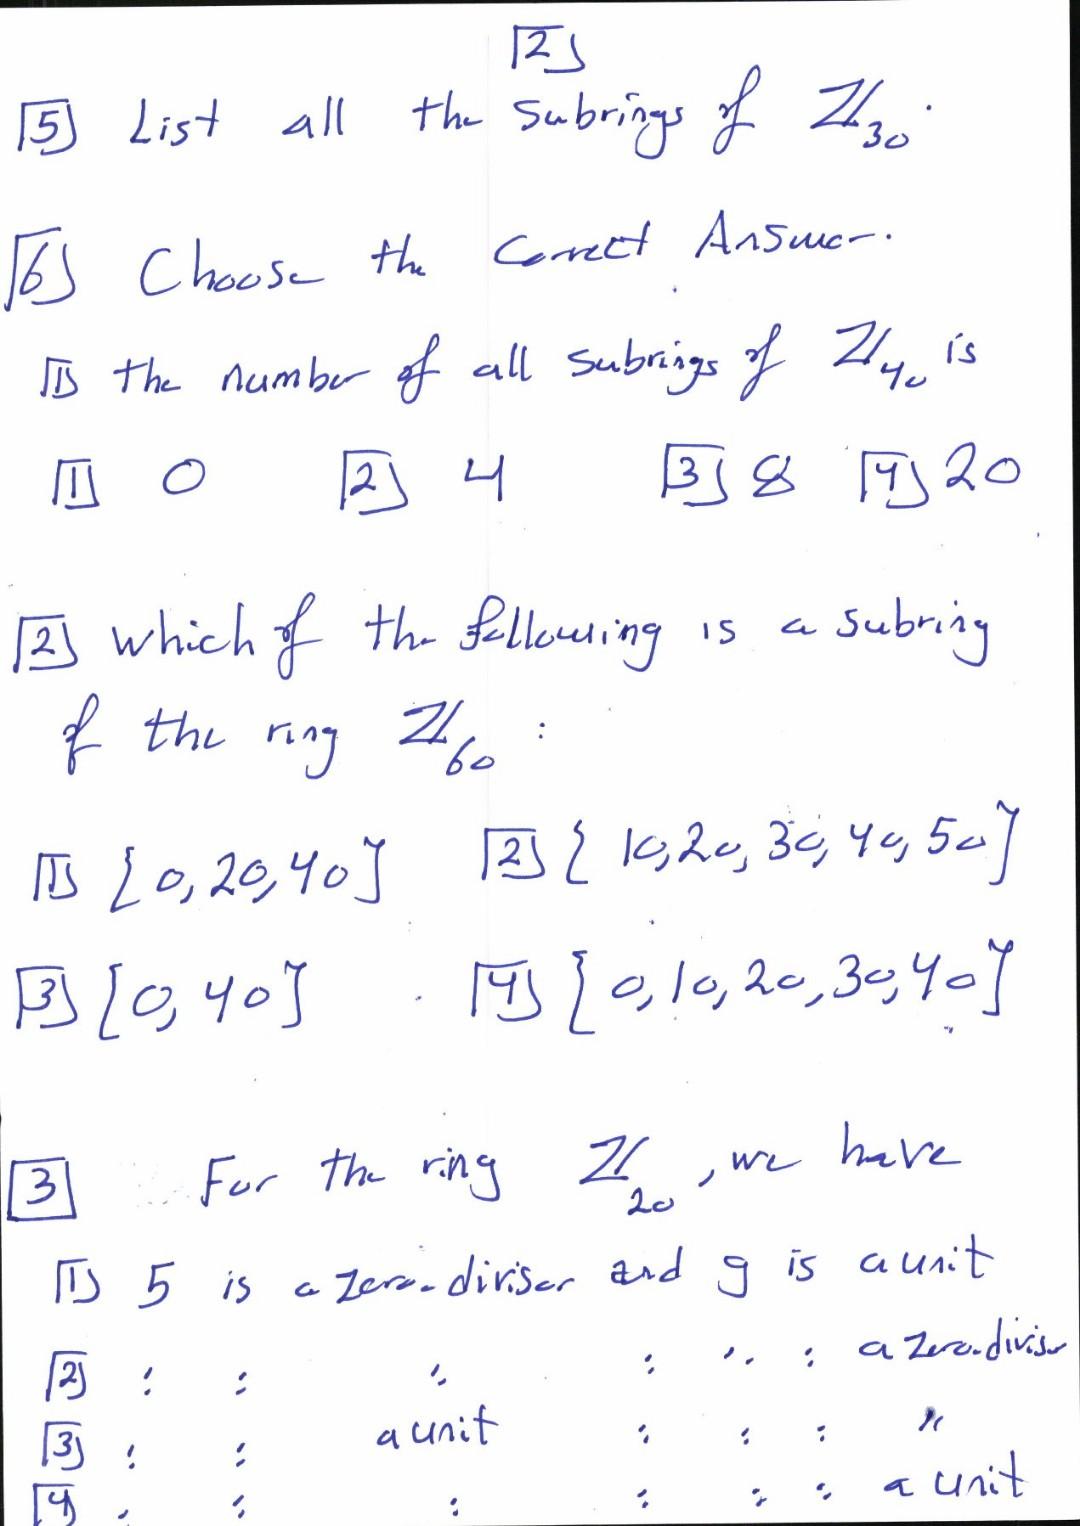 2
5 List all the Subrings of Z₃₀.
6 Choose the Correct Answer.
1 the number of all subrings of Z₄₀ is
1 0 2 4 3 8 4 20
2 which of the following is a subring
of the ring Z₆₀ :
1 {0, 20, 40} 2 {10, 20, 30, 40, 50}
3 {0, 40} 4 {0, 10, 20, 30, 40}
3 For the ring Z₂₀, we have
1 5 is a zero-divisor and 9 is a unit
2 " " " " " " a zero-divisor
3 " " a unit " " " "
4 " " " " " " a unit